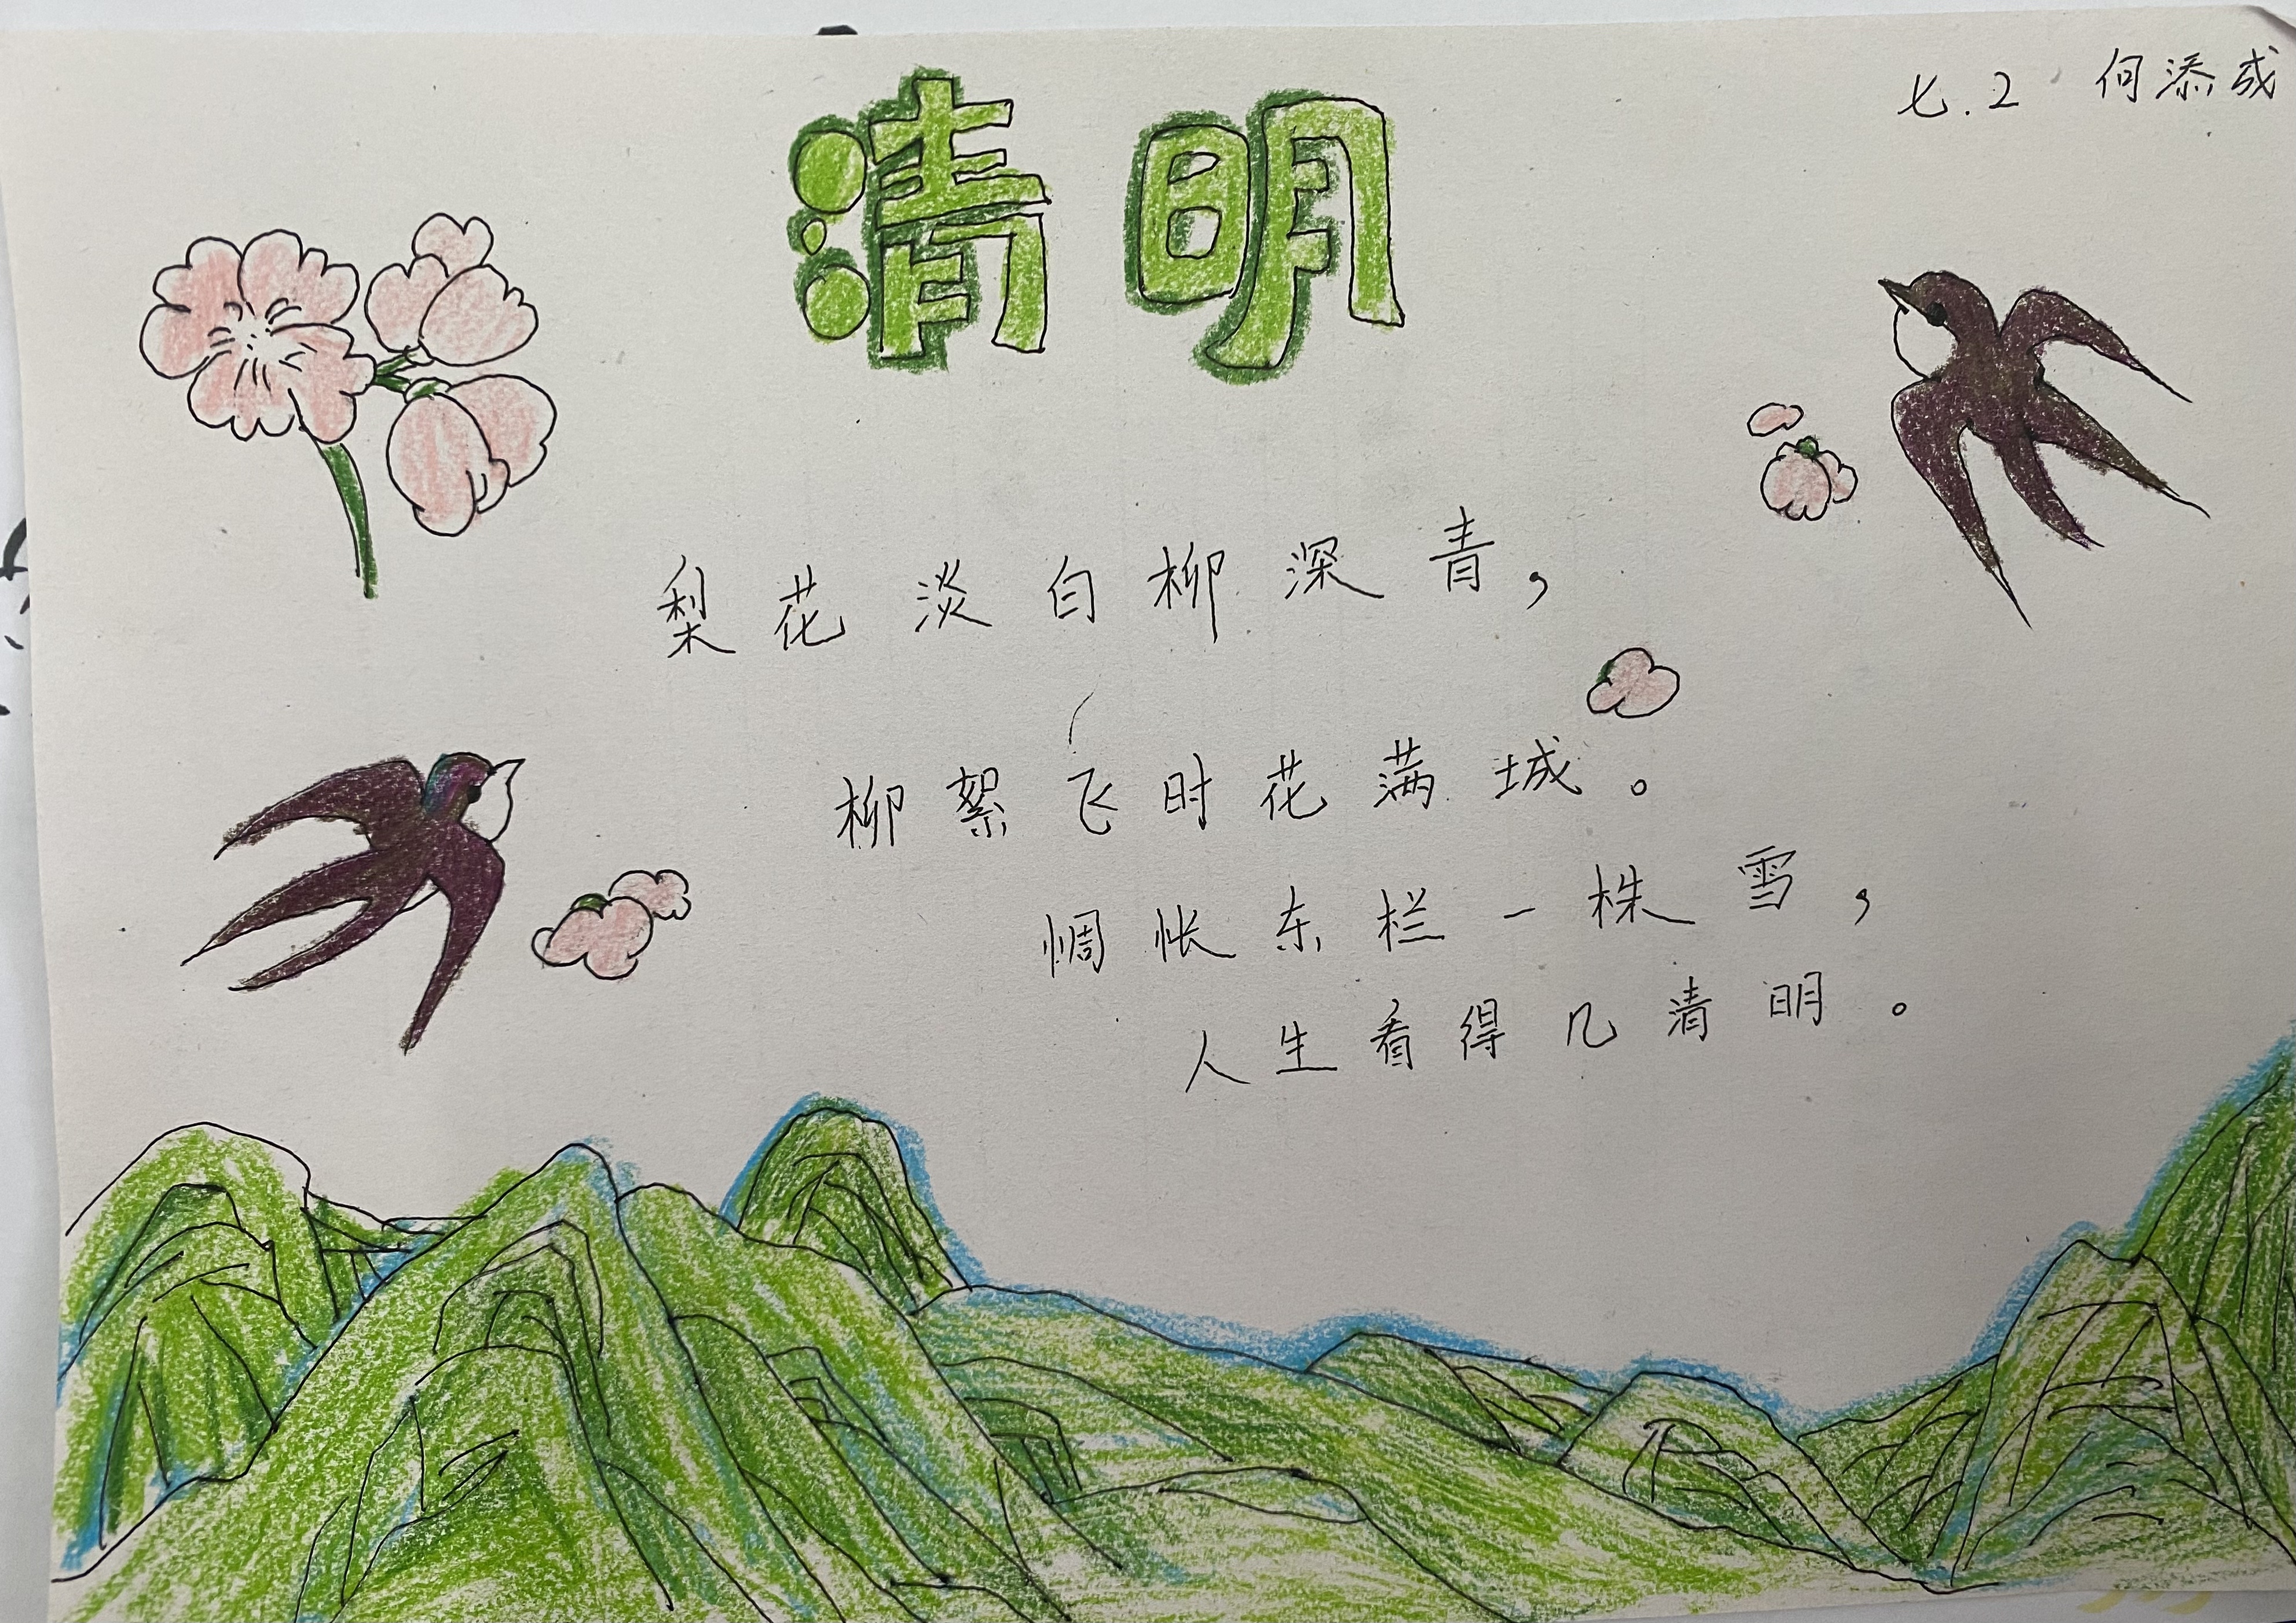 七.2 何添成
清明
梨花淡白柳深青，
柳絮飞时花满城。
惆怅东栏一株雪，
人生看得几清明。